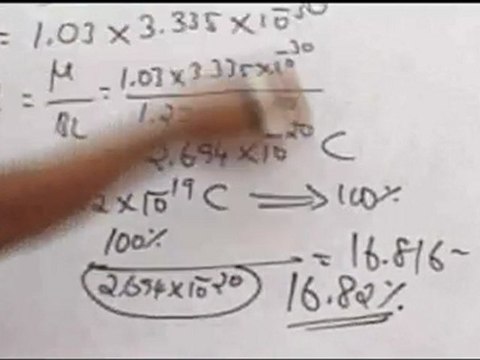 = 1.03 × 3.335 × 10⁻³⁰
= μ/BL = 1.03 × 3.335 × 10⁻³⁰ / 1.2
2.694 × 10⁻²⁰ C
2 × 10⁻¹⁹ C ⟹ 100%
100% / 2.694 × 10⁻²⁰ = 16.816 ~
16.82%